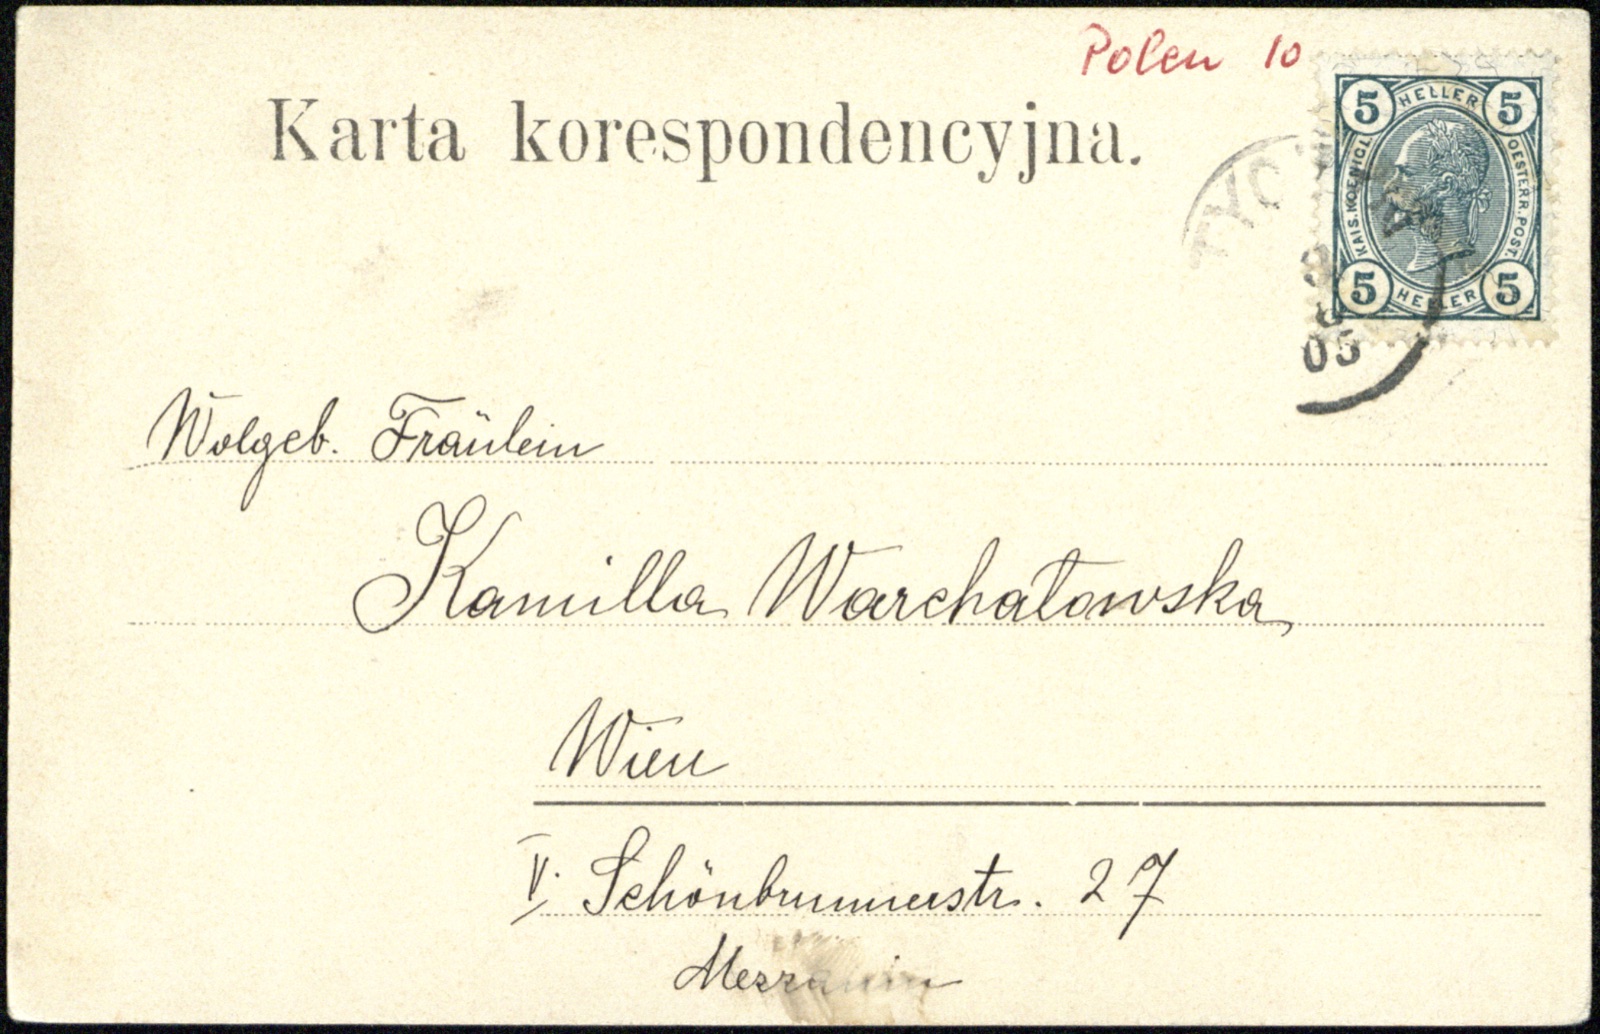 Polen 10
Karta korespondencyjna.
5 HELLER 5
KAIS. KOENIGL. OESTERR. POST.
5 HELLER 5
TYC
05
Wolgeb. Fräulein
Kamilla Warchatowska
Wien
V. Schönbrunnerstr. 27
Mezzanin